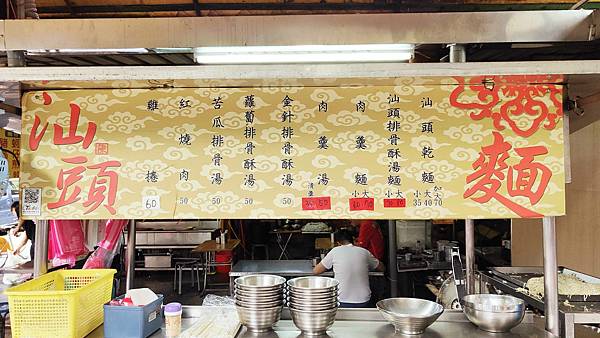 麵
汕頭乾麵 小大加大 35 40 70
汕頭排骨酥湯麵 小大
肉羹麵 小大
肉羹湯 清羹 50
金針排骨酥湯 50
蘿蔔排骨酥湯 50
苦瓜排骨湯 50
紅燒肉 50
雞捲 60
汕頭